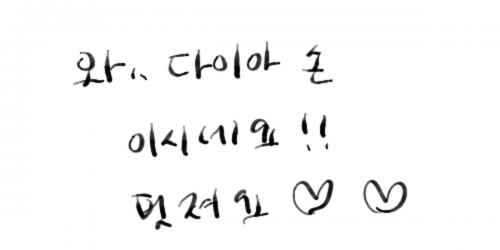 와,, 다이아 손
이시네요!!
멋져요 ♡ ♡